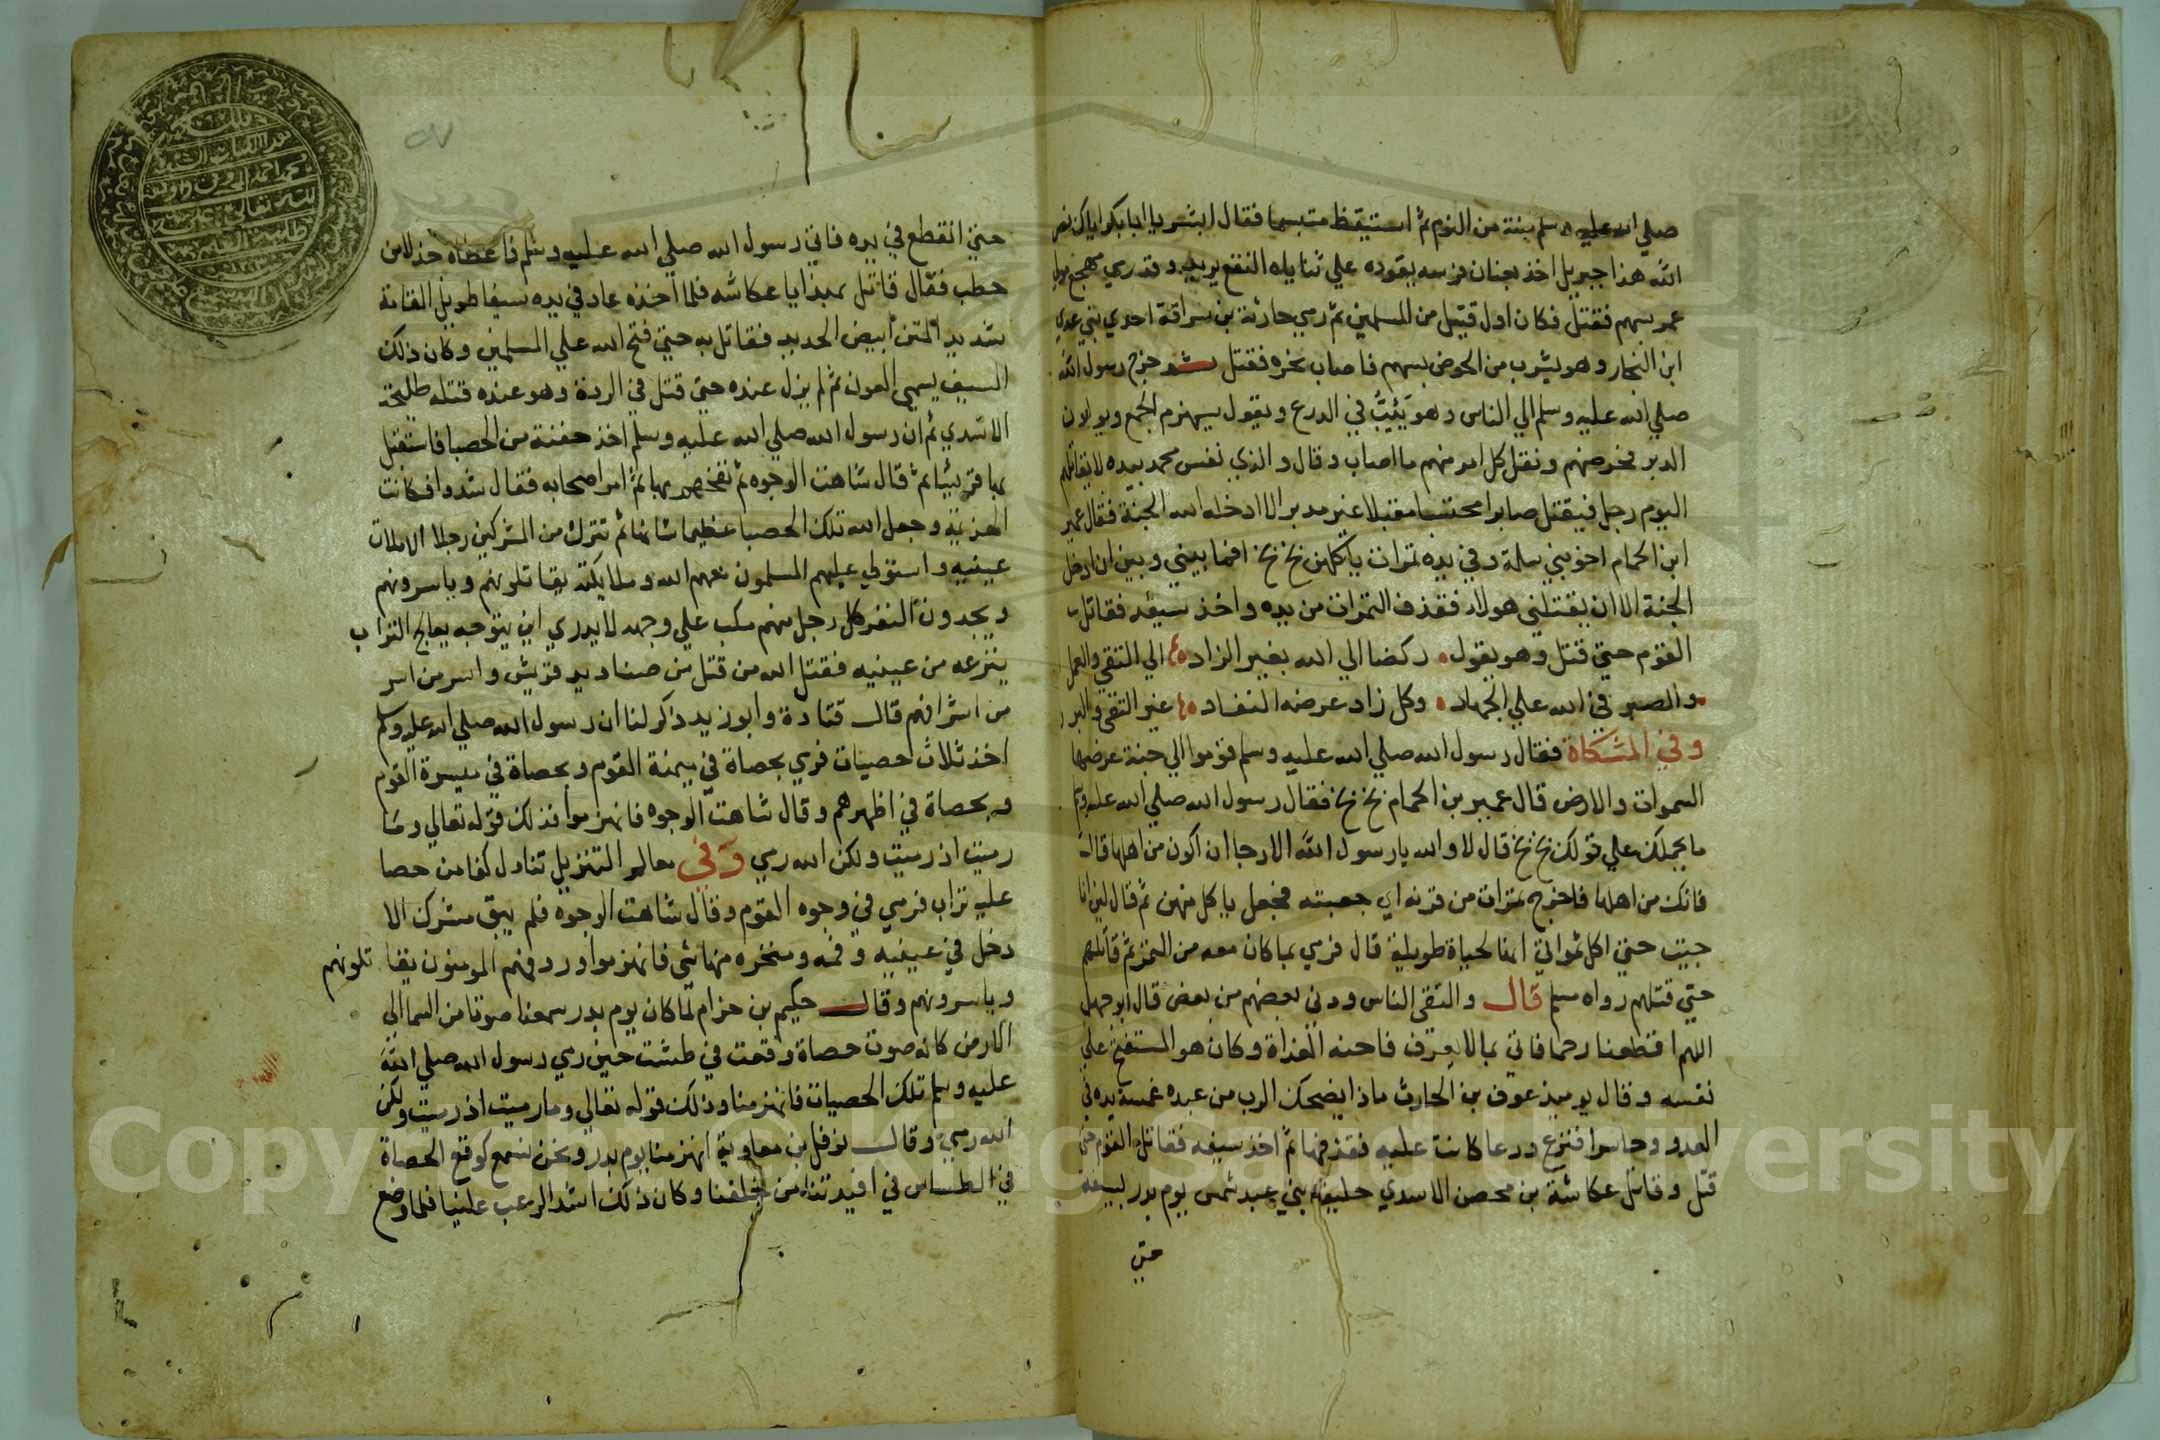 صلي الله عليه وسلم بينة من النوم ثم استيقظ متبسما فقال ابشر يا ابا بكر اتاك نصر
الله هذا جبريل اخذ بعنان فرسه يقوده علي ثناياه النقع يريد وقد رمي مهجع مولي
عمر بسهم فقتل فكان اول قتيل من المسلمين ثم رمي حارثة بن سراقة احدي بني عدي
ابن النجار وهو يشرب من الحوض بسهم فاصاب نحره فقتل ثم خرج رسول الله
صلي الله عليه وسلم الي الناس وهو يثب في الدرع ويقول سيهزم الجمع ويولون
الدبر فحرضهم ونفل كل امر منهم ما اصاب وقال والذي نفس محمد بيده لا يقاتلهم
اليوم رجل فيقتل صابرا محتسبا مقبلا غير مدبر الا ادخله الله الجنة فقال عمير
ابن الحمام اخو بني سلمة وفي يده تمرات ياكلهن بخ بخ افما بيني وبين ان ادخل
الجنة الا ان يقتلني هولاء فقذف التمرات من يده واخذ سيفه فقاتل
القوم حتي قتل وهو يقول ركضا الي الله بغير الزاد الي التقي والعمل
والصبر في الله علي الجهاد وكل زاد عرضه النفاد غير التقي والبر
وفي المشكاة فقال رسول الله صلي الله عليه وسلم قوموا الي جنة عرضها
السموات والارض قال عمير بن الحمام بخ بخ فقال رسول الله صلي الله عليه وسلم
ما يحملك علي قولك بخ بخ قال لا والله يا رسول الله الا رجا ان اكون من اهلها قال
فانك من اهلها فاخرج تمرات من قرنه اي جعبته فجعل ياكل منهن ثم قال لين انا
حييت حتي اكل تمراتي انها لحياة طويلة قال فرمي بما كان معه من التمر ثم قاتلهم
حتي قتلهم رواه مسلم قال والتقي الناس ودني بعضهم من بعض قال ابو جهل
اللهم اقطعنا رحما فاتي بما لا يعرف فاحنه الغداة وكان هو المستفتح علي
نفسه وقال يوميذ عوف بن الحارث ماذا يضحك الرب من عبده غمسة يده في
العدو وحاسرا فنزع درعا كانت عليه فقذفها ثم اخذ سيفه فقاتل القوم حتي
قتل وقاتل عكاشة بن محصن الاسدي حليف بني عبد شمس يوم بدر بسيفه
حتي
حتي انقطع في يده فاتي رسول الله صلي الله عليه وسلم فاعطاه جذلا من
حطب فقال قاتل بهذا يا عكاشه فلما اخذه عاد في يده سيفا طويل القامة
شديد المتن ابيض الحديد فقاتل به حتي فتح الله علي المسلمين وكان ذلك
السيف يسمي العون ثم لم يزل عنده حتي قتل في الردة وهو عنده قتله طليحة
الاسدي ثم ان رسول الله صلي الله عليه وسلم اخذ حفنة من الحصبا فاستقبل
بها قريشا ثم قال شاهت الوجوه ثم نفخهم بها ثم امر اصحابه فقال شدوا فكانت
الهزيمة وجعل الله تلك الحصبا عظيما شانها ثم تترك من المشركين رجلا الا ملات
عينيه واستولي عليهم المسلمون معهم الله وملايكته يقاتلونهم وياسرونهم
ويجدون النفر كل رجل منهم مكب علي وجهه لا يدري اين يتوجه يعالج التراب
ينزعه من عينيه فقتل الله من قتل من صناديد قريش واسر من اسر
من اشرافهم قال قتادة وابو زيد ذكر لنا ان رسول الله صلي الله عليه وسلم
اخذ ثلاث حصيات فرمي بحصاة في ميمنة القوم وبحصاة في ميسرة القوم
وبحصاة في اظهرهم وقال شاهت الوجوه فانهزموا فذلك قوله تعالي وما
رميت اذ رميت ولكن الله رمي وفي معالم التنزيل تناول كفا من حصا
عليه تراب فرمي في وجوه القوم وقال شاهت الوجوه فلم يبق مشرك الا
دخل في عينيه وفمه ومنخره منها شي فانهزموا وردفهم المومنون يقاتلونهم
وياسرونهم وقال حكيم بن حزام لما كان يوم بدر سمعنا صوتا من السما الي
الارض كانه صوت حصاة وقعت في طشت حين رمي رسول الله صلي الله
عليه وسلم تلك الحصيات فانهزمنا وذلك قوله تعالي وما رميت اذ رميت ولكن
الله رمي وقال نوفل بن معاوية انهزمنا يوم بدر ونحن نسمع كوقع الحصاة
في الطساس في افيدتنا من خلفنا وكان ذلك اشد الرعب علينا فلما وضع